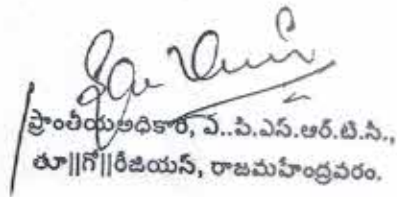 ప్రాంతీయఅధికారి, ఎ..పి.ఎస్.ఆర్.టి.సి.,
తూ||గో||రీజియన్, రాజమహేంద్రవరం.